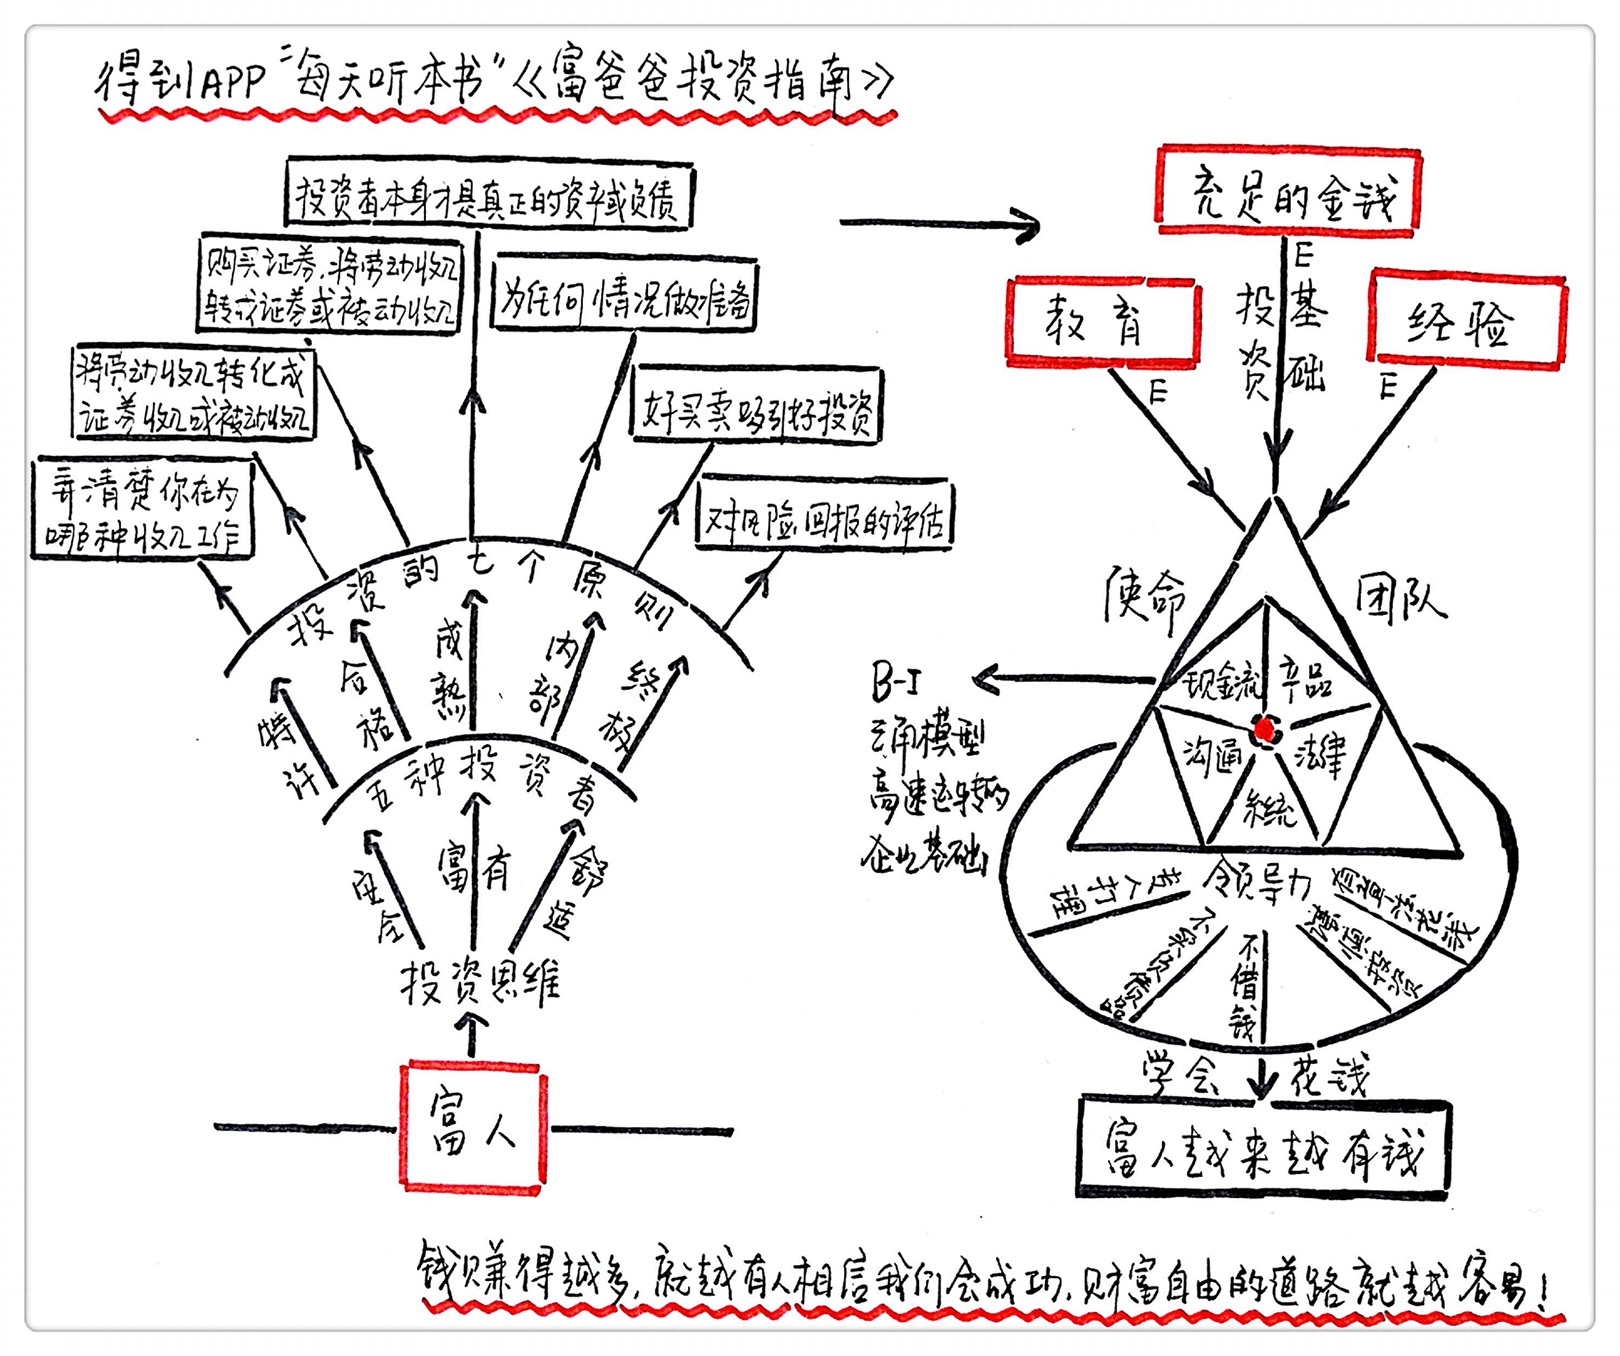 得到APP“每天听本书”《富爸爸投资指南》
投资者本身才是真正的资产或负债
购买证券,将劳动收入
转成证券或被动收入
为任何情况做准备
将劳动收入转化成
证券收入或被动收入
好买卖吸引好投资
弄清楚你在为
哪种收入工作
对风险回报的评估
投资的七个原则
特许
合格
成熟
内部
终极
五种投资者
安全
富有
舒适
投资思维
富人
充足的金钱
E
教育
E
经验
E
投资
基础
使命
团队
现金流
产品
沟通
法律
系统
B-I
三角模型
高速运转的
企业基础
领导力
专人打理
不借钱
学会
花钱
富人越来越有钱
钱赚得越多,就越有人相信我们会成功,财富自由的道路就越容易!